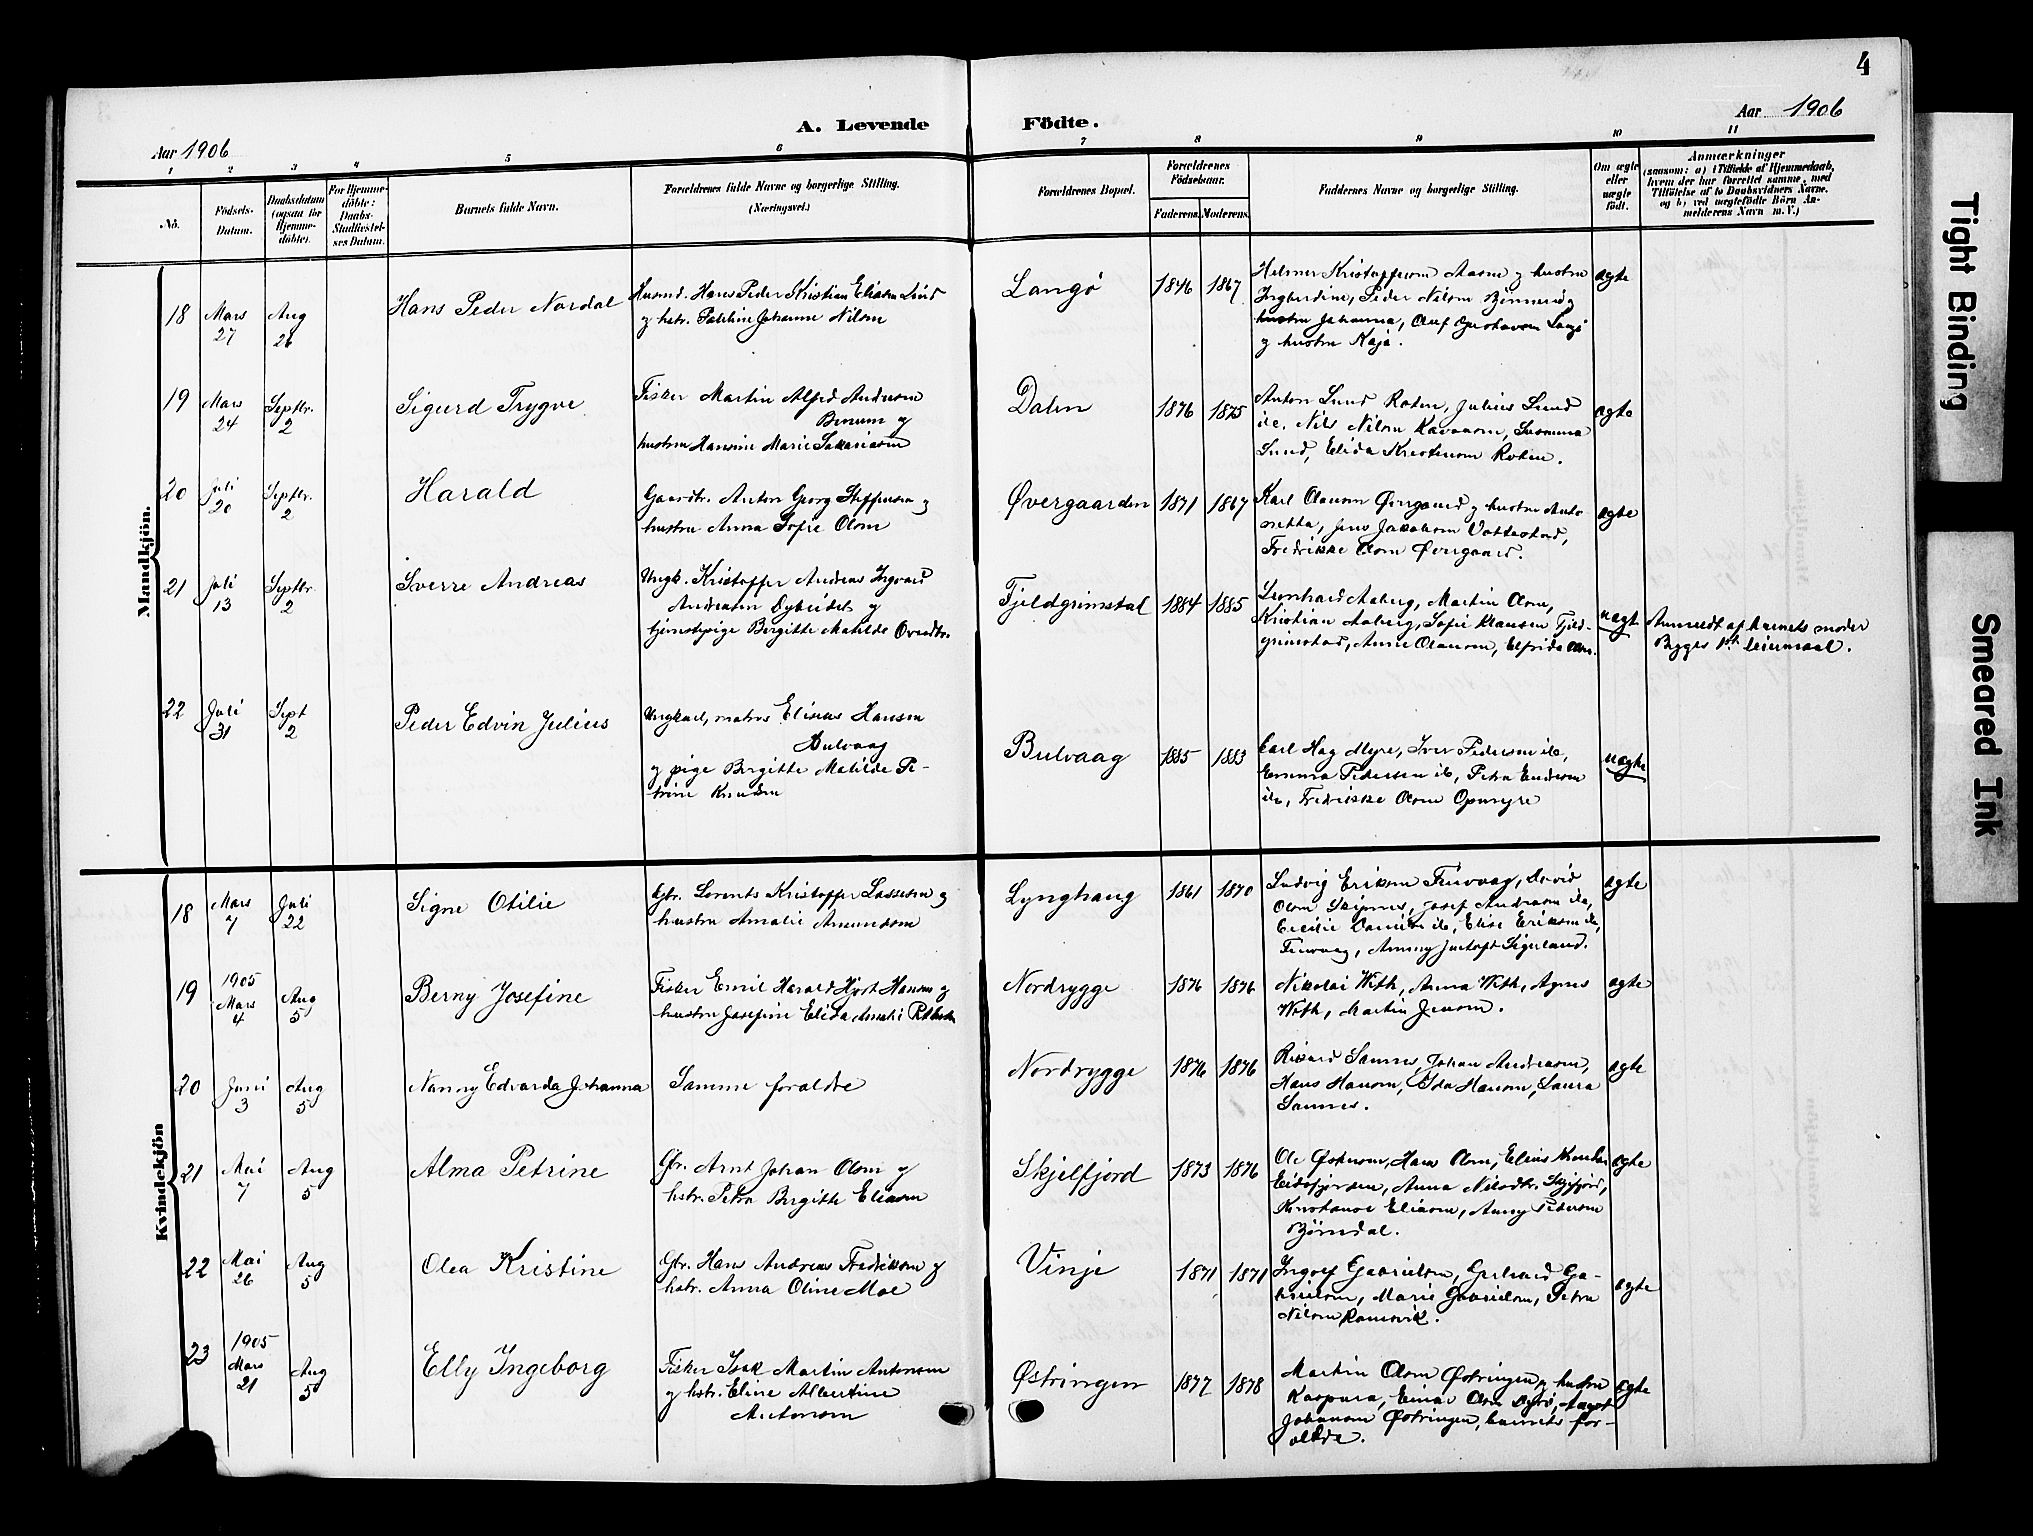 4
A. Levende Födte.
Aar 1906
Aar 1906
1 2 3 4 5 6 7 8 9 10 11
No.
Födsels-Datum.
Daabsdatum (ogsaa for Hjemme-döbte).
For Hjemme-döbte: Daabs-Stadfæstel-ses Datum.
Barnets fulde Navn.
Forældrenes fulde Navne og borgerlige Stilling. (Næringsvei.)
Forældrenes Bopæl.
Forældrenes Födselsaar.
Faderens. Moderens.
Faddernes Navne og borgerlige Stilling.
Om ægte eller uægte födt.
Anmærkninger
(saasom: a) i Tilfælde af Hjemmedaab,
hvem der har forrettet samme, med
Tilföielse af to Daabsvidners Navne.
og b) ved uægtefödte Börn An-
melderens Navn m. V.)
Mandkjön.
18 Mars 27 Aug 26 Hans Peder Nordal
Husmd. Hans Peder Kristian Eliasen Lind
og hstr. Johanne Nilsen
Langö 1876 1867
Helmer Kristoffersen Aasen og hustru
Ingberdine, Peder Nilsen
hustru Johanna, Oluf Gustavsen Langö
og hustru Kaja.
ægte
19 Mars 24 Septbr. 2 Sigurd Trygve
Fisker Martin Alfred Andersen
Benum og
hustru Hansine Marie Sakariasen
Dalen 1876 1875
Anton Lund Roten, Julius Lund
ib., Nils Nilsen, Susanna
Lund, Elida Kristensen Roten.
ægte
20 Juli 20 Septbr. 2 Harald
Gaardbr. Anton Georg Steffensen og
hustru Anna Sofie Olsen
Øvergaarden 1871 1867
Karl Olausen Övergaard og hustru Anto-
netta, Jens Jakobsen Vottestad,
Fredrikke Olsen Övergaard.
ægte
21 Juli 13 Septbr. 2 Sverre Andreas
Ungk. Kristoffer Andreas Ingvard
Andreasen og
tjenestepige Bergitte Matilde
Fjeldgrimstad 1884 1885
Leonhard Aaberg, Martin Olsen,
Kristian Aaberg, Sofie Klausen Fjeld-
grimstad, Anne Olausen, Elfrida Olsen.
uægte
Anmeldt af barnets moder
Begges 1st leiermaal.
22 Juli 31 Sept 2 Peder Edvin Julius
Ungkarl, matros Elisæus Hansen
Bulvaag
og pige Bergitte Matilde Pe-
trine Knudsen
Bulvaag 1885 1883
Carl Hag Myre, Iver Pedersen ib.,
Emma Pedersen ib., Petra Endresen
ib., Fredrikke Olsen Opmyre
uægte
Kvindekjön
18 Mars 7 Juli 22 Signe Otilie
Gbr. Lorents Kristoffer Lassesen og
hustru Amalie Amundsen
Lynghaug 1861 1870
Ludvig Eriksen Finvaag, David
Olsen Skipnes, Josef Andreasen ib.,
Cecilie ib., Elise Eriksen ib.,
Finvaag, Ammy Justoft Sigerland.
ægte
19 1905 Mars 4 Aug 5 Berny Josefine
Fisker Emil Harald Hjort Hansen og
hustru Josefine Elida Amalie
Nordrygge 1876 1876
Nikolai With, Anna With, Agnes
With, Martin Jensen.
ægte
20 Juni 3 Aug 5 Nanny Edvarda Johanna
Samme forældre
Nordrygge 1876 1876
Rikard Sannes, Johan Andreasen,
Hans Hansen, Ida Hansen, Laura
Sannes.
ægte
21 Mai 7 Aug 5 Alma Petrine
Gbr. Arnt Johan Olsen og
hstr. Petra Bergitte Eliasen
Skjelfjord 1873 1876
Ole Østensen, Hans Olsen, Elias
Eidsfjorden, Anna Nilsdtr. Skjelfjord,
Konstanse Eliasen, Anny Pedersen
Björndal.
ægte
22 Mai 26 Aug 5 Olea Kristine
Gbr. Hans Andreas Fredriksen og
hstr. Anna Oline Moe
Vinje 1871 1871
Ingolf Gabrielsen, Gerhard Ga-
brielsen, Marie Gabrielsen, Petra
Nilsen Ramsvik.
ægte
23 1905 Mars 21 Aug 5 Elly Ingeborg
Fisker Isak Martin Antonsen
og hstr. Eline Albertine
Antonsen
Østringen 1877 1878
Martin Olsen Östringen og hustru
Kaspara, Einar Olsen, August
Johansen Östringen, barnets for-
ældre.
ægte
Tight Binding
Smeared Ink